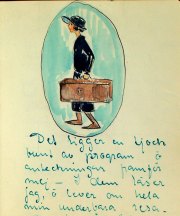 Det ligger en tjock
bunt av program o
anteckningar framför
mej – I dem läser
jag, o lever om hela
min underbara resa.